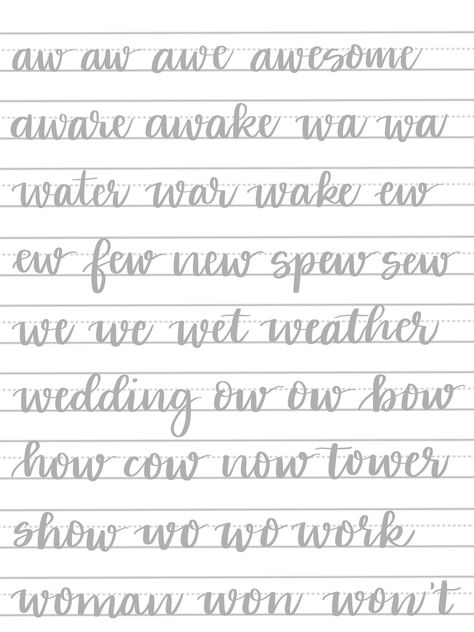 aw aw awe awesome
aware awake wa wa
water war wake ew
ew few new spew sew
we we wet weather
wedding ow ow bow
how cow now tower
show wo wo work
woman won won't